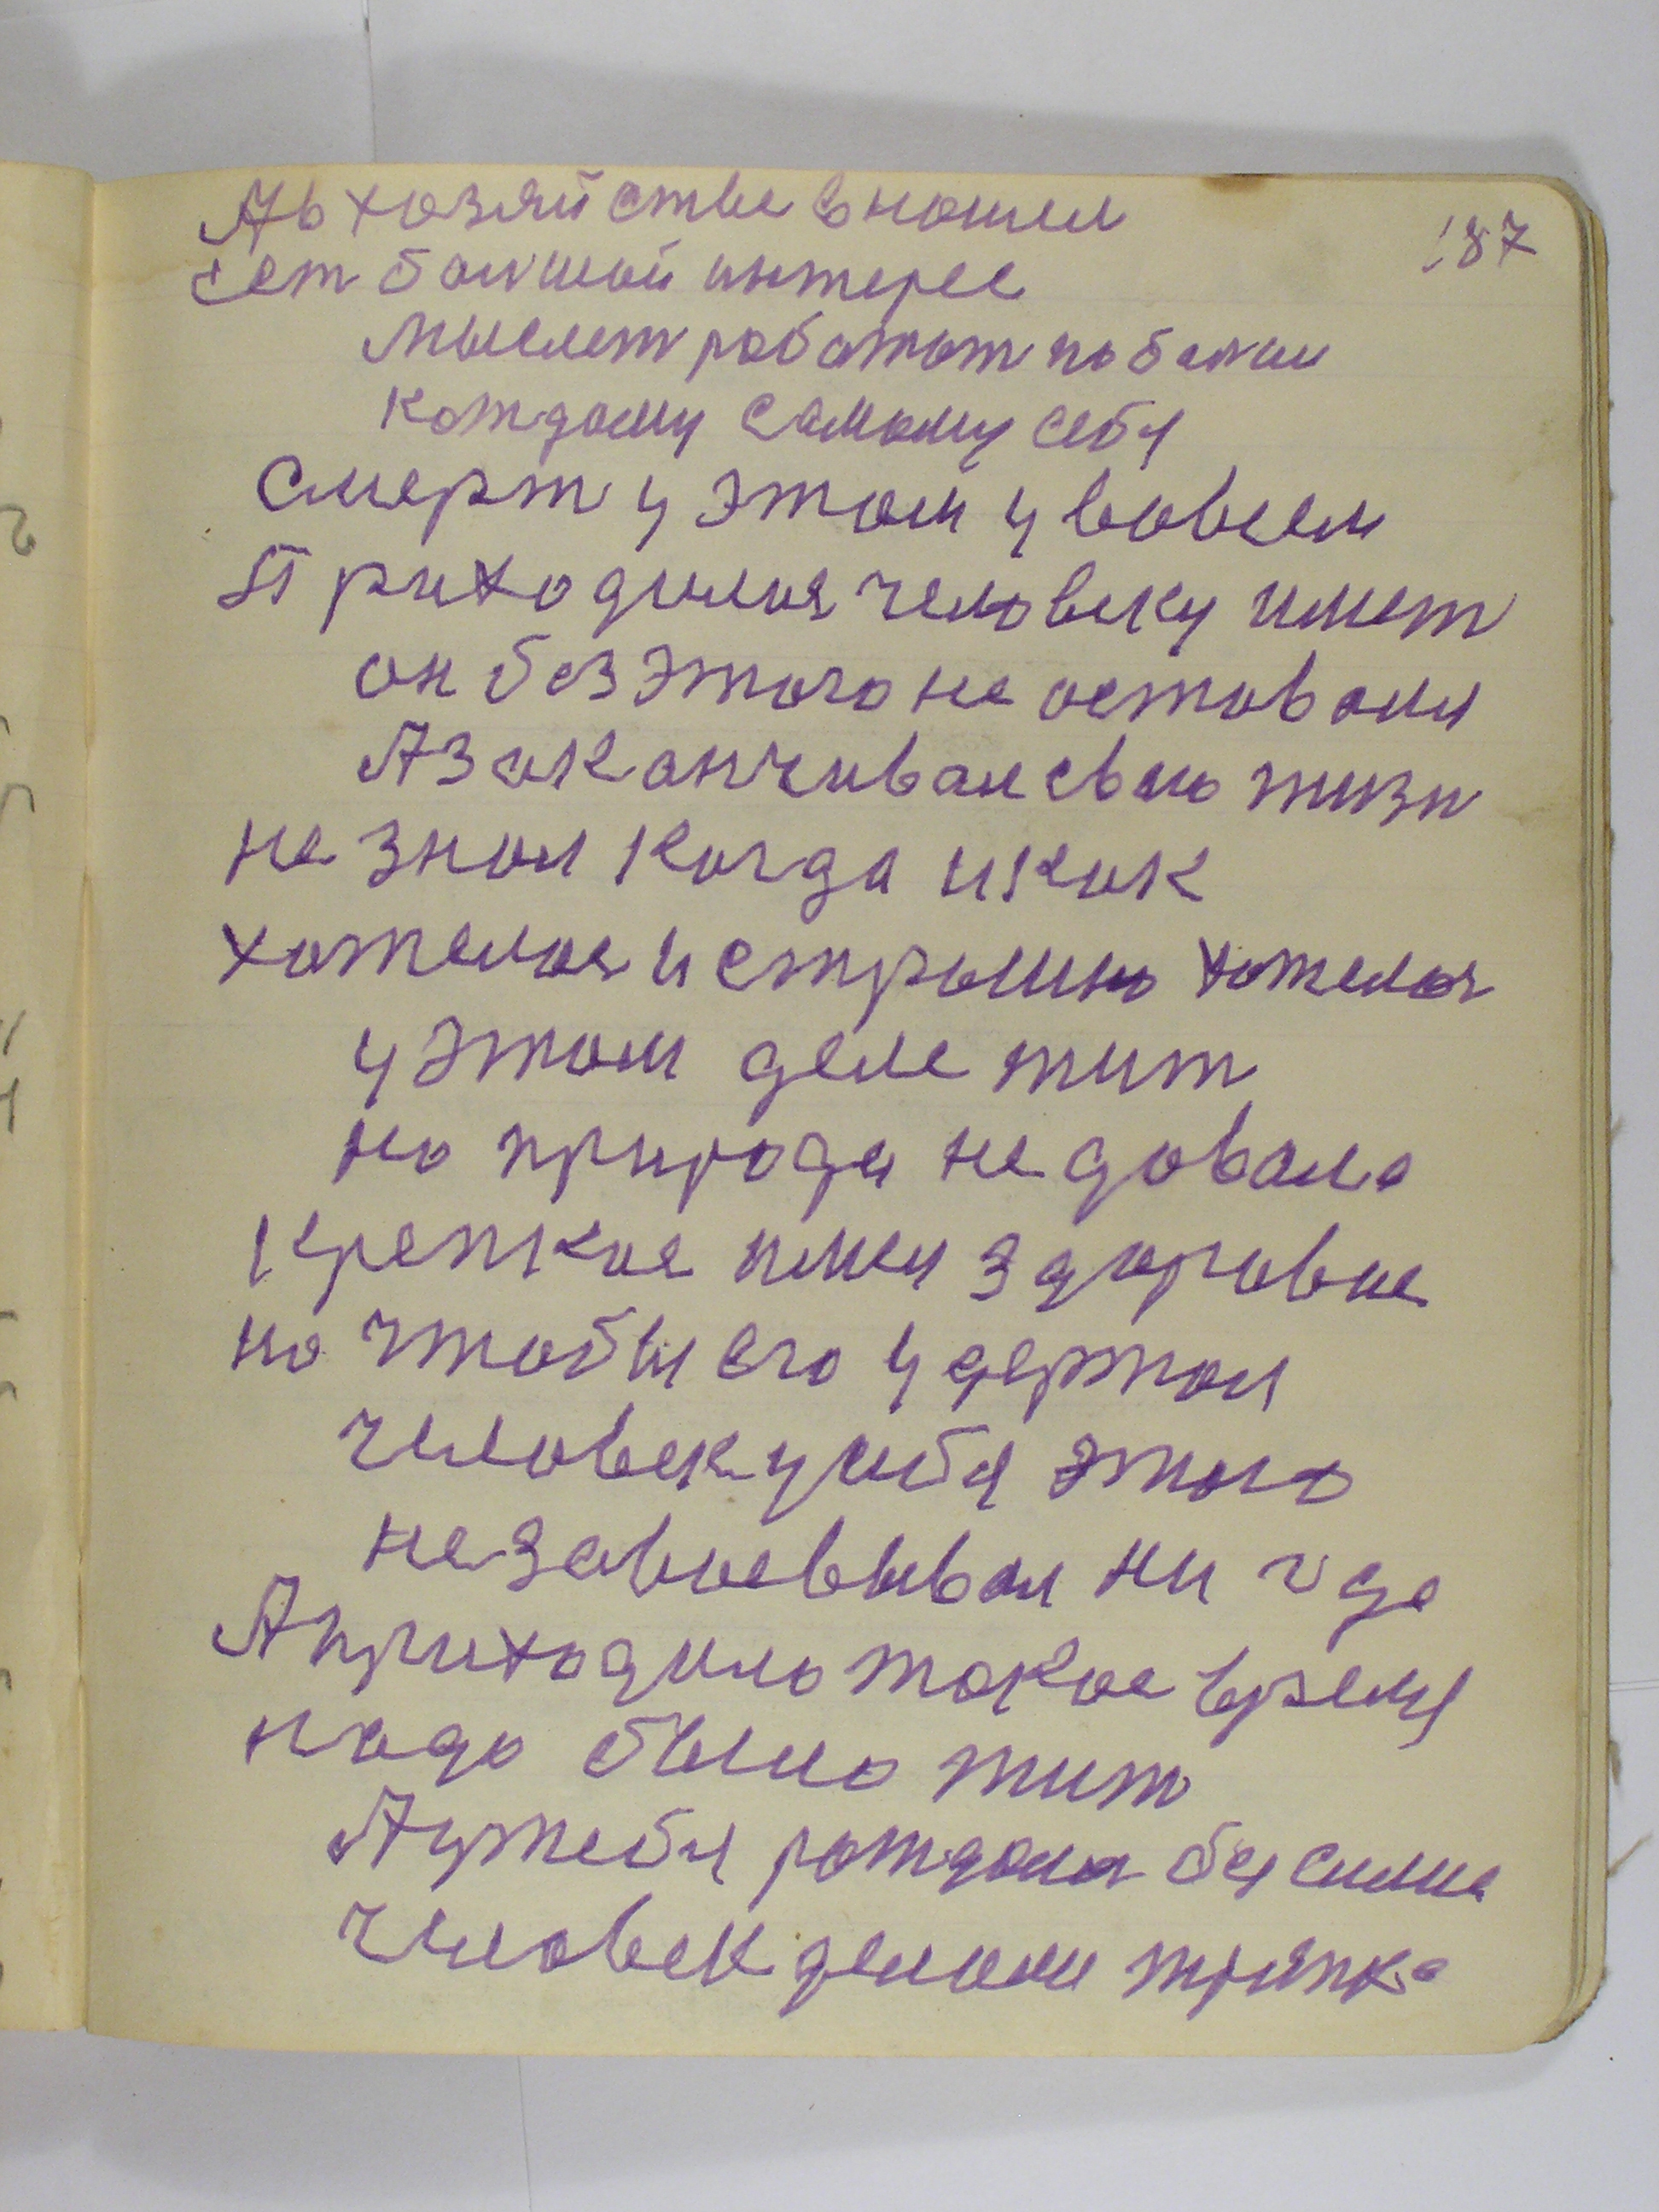 187
Ав хозяйстве в нашем
сет болшой интерес
мыслет работат по болши
каждому самому себя
Смерт у этом у вовсем
Приходился человеку имет
он без этого не оставался
А заканчивал свою жизн
не знал когда и как
хотелос и страшно хотелос
у этом деле жит
но природа не довала
крепкое имел здоровие
но чтобы его удержал
человек у себя этого
не завоевывал ни где
А приходило такое время
надо было жит
А у тебя рождался бесилие
человек делался тряпка